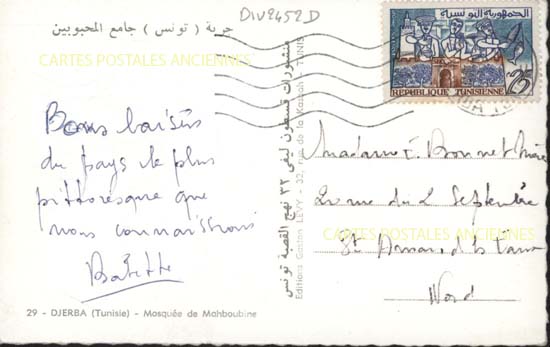 DIV2452D
جربة ( تونس ) جامع المحبوبين
CARTES POSTALES ANCIENNES
Bons baisers
du pays le plus
pittoresque que
nous connaissions
Babette
29 - DJERBA (Tunisie) - Mosquée de Mahboubine
منشورات قسطون ليفي ٣٢ نهج القصبة تونس
Editions Gaston LEVY - 32, rue de la Kasbah - TUNIS
الجمهورية التونسية
25
REPUBLIQUE TUNISIENNE
Madame E. Bonnet
20 rue du 2 Septembre
CARTES POSTALES ANCIENNES
St Amand les Eaux
Nord